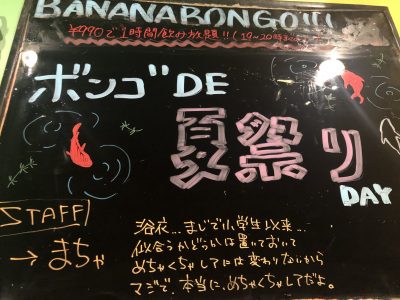 BANANABONGO!!!
¥990で1時間飲み放題!!(19~20時
ボンゴDE
夏祭り
DAY
STAFF
→まちゃ
浴衣...まじで小学生以来...
似合うかどうかは置いておいて
めちゃくちゃしてには変わりないから
マジで、本当に、めちゃくちゃしてだよ。